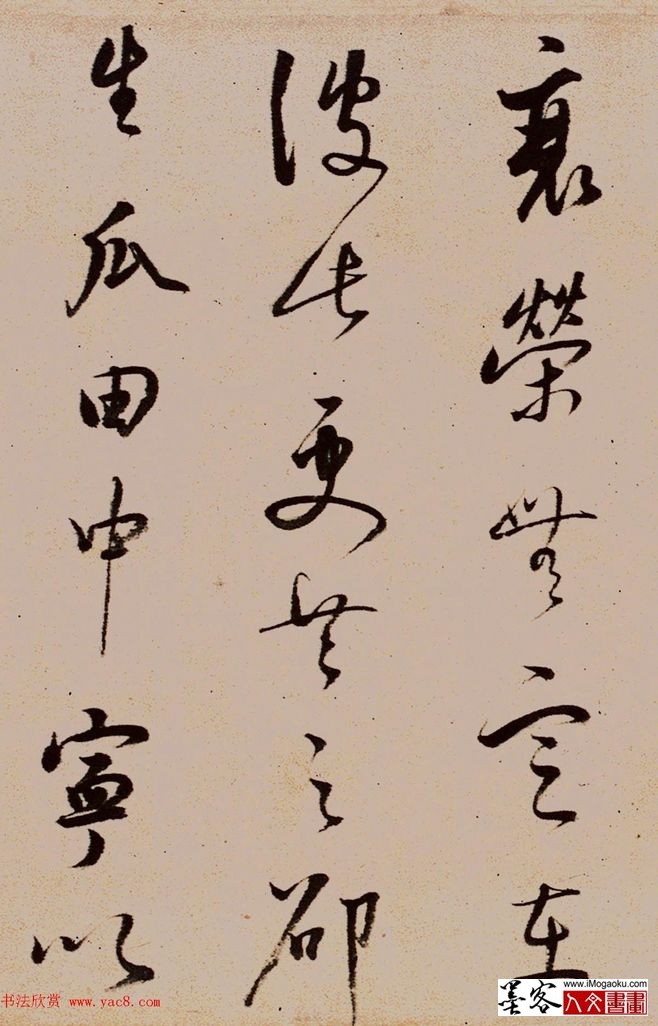 衰榮無定在
彼此更共之邵
生瓜田中寧似
书法欣赏 www.yac8.com
墨客
www.iMogaoku.com
人文書畫